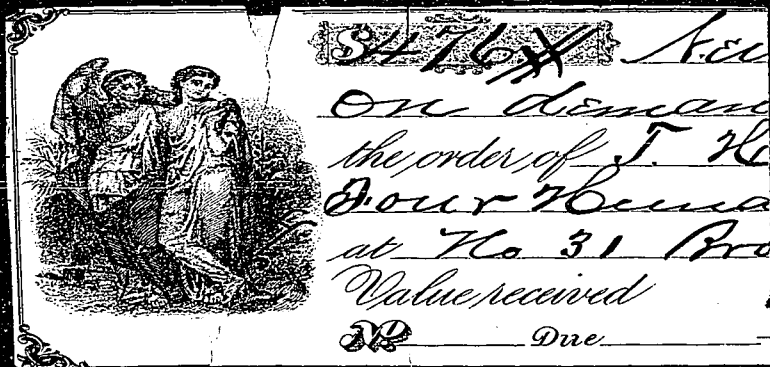 $476
On deman
the order of T. H
Four Hund
at No 31 Bro
Value received
No Due